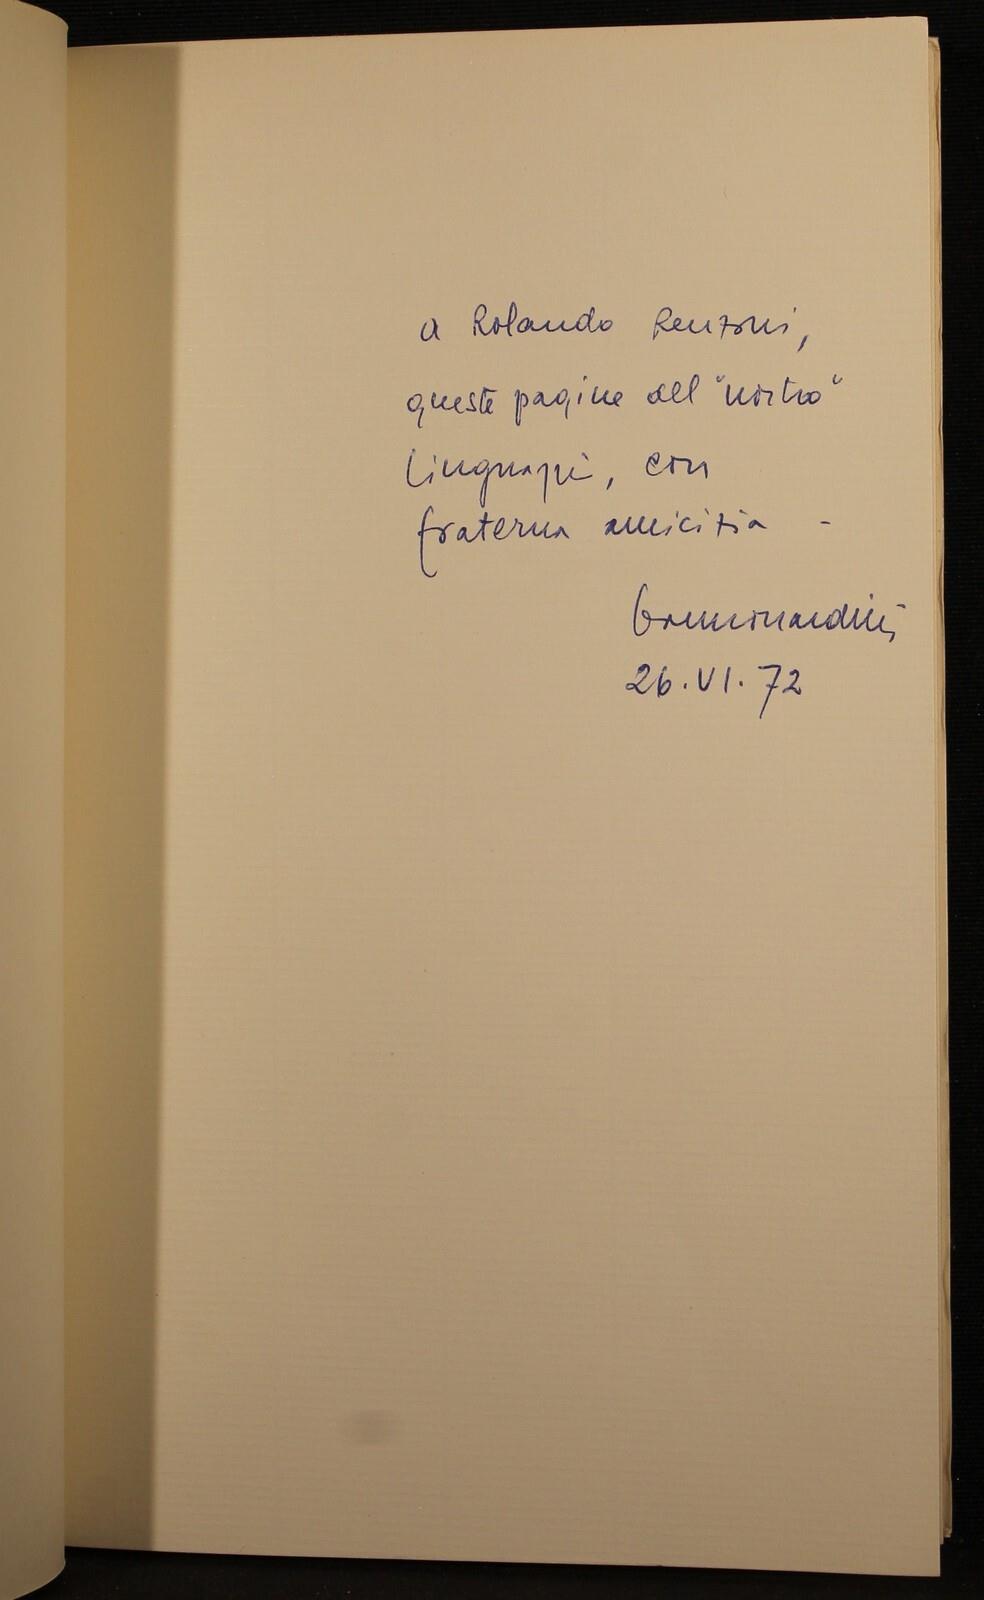 a Rolando Renzoni,
queste pagine del "nostro"
linguaggio, con
fraterna amicizia -
26.VI.72